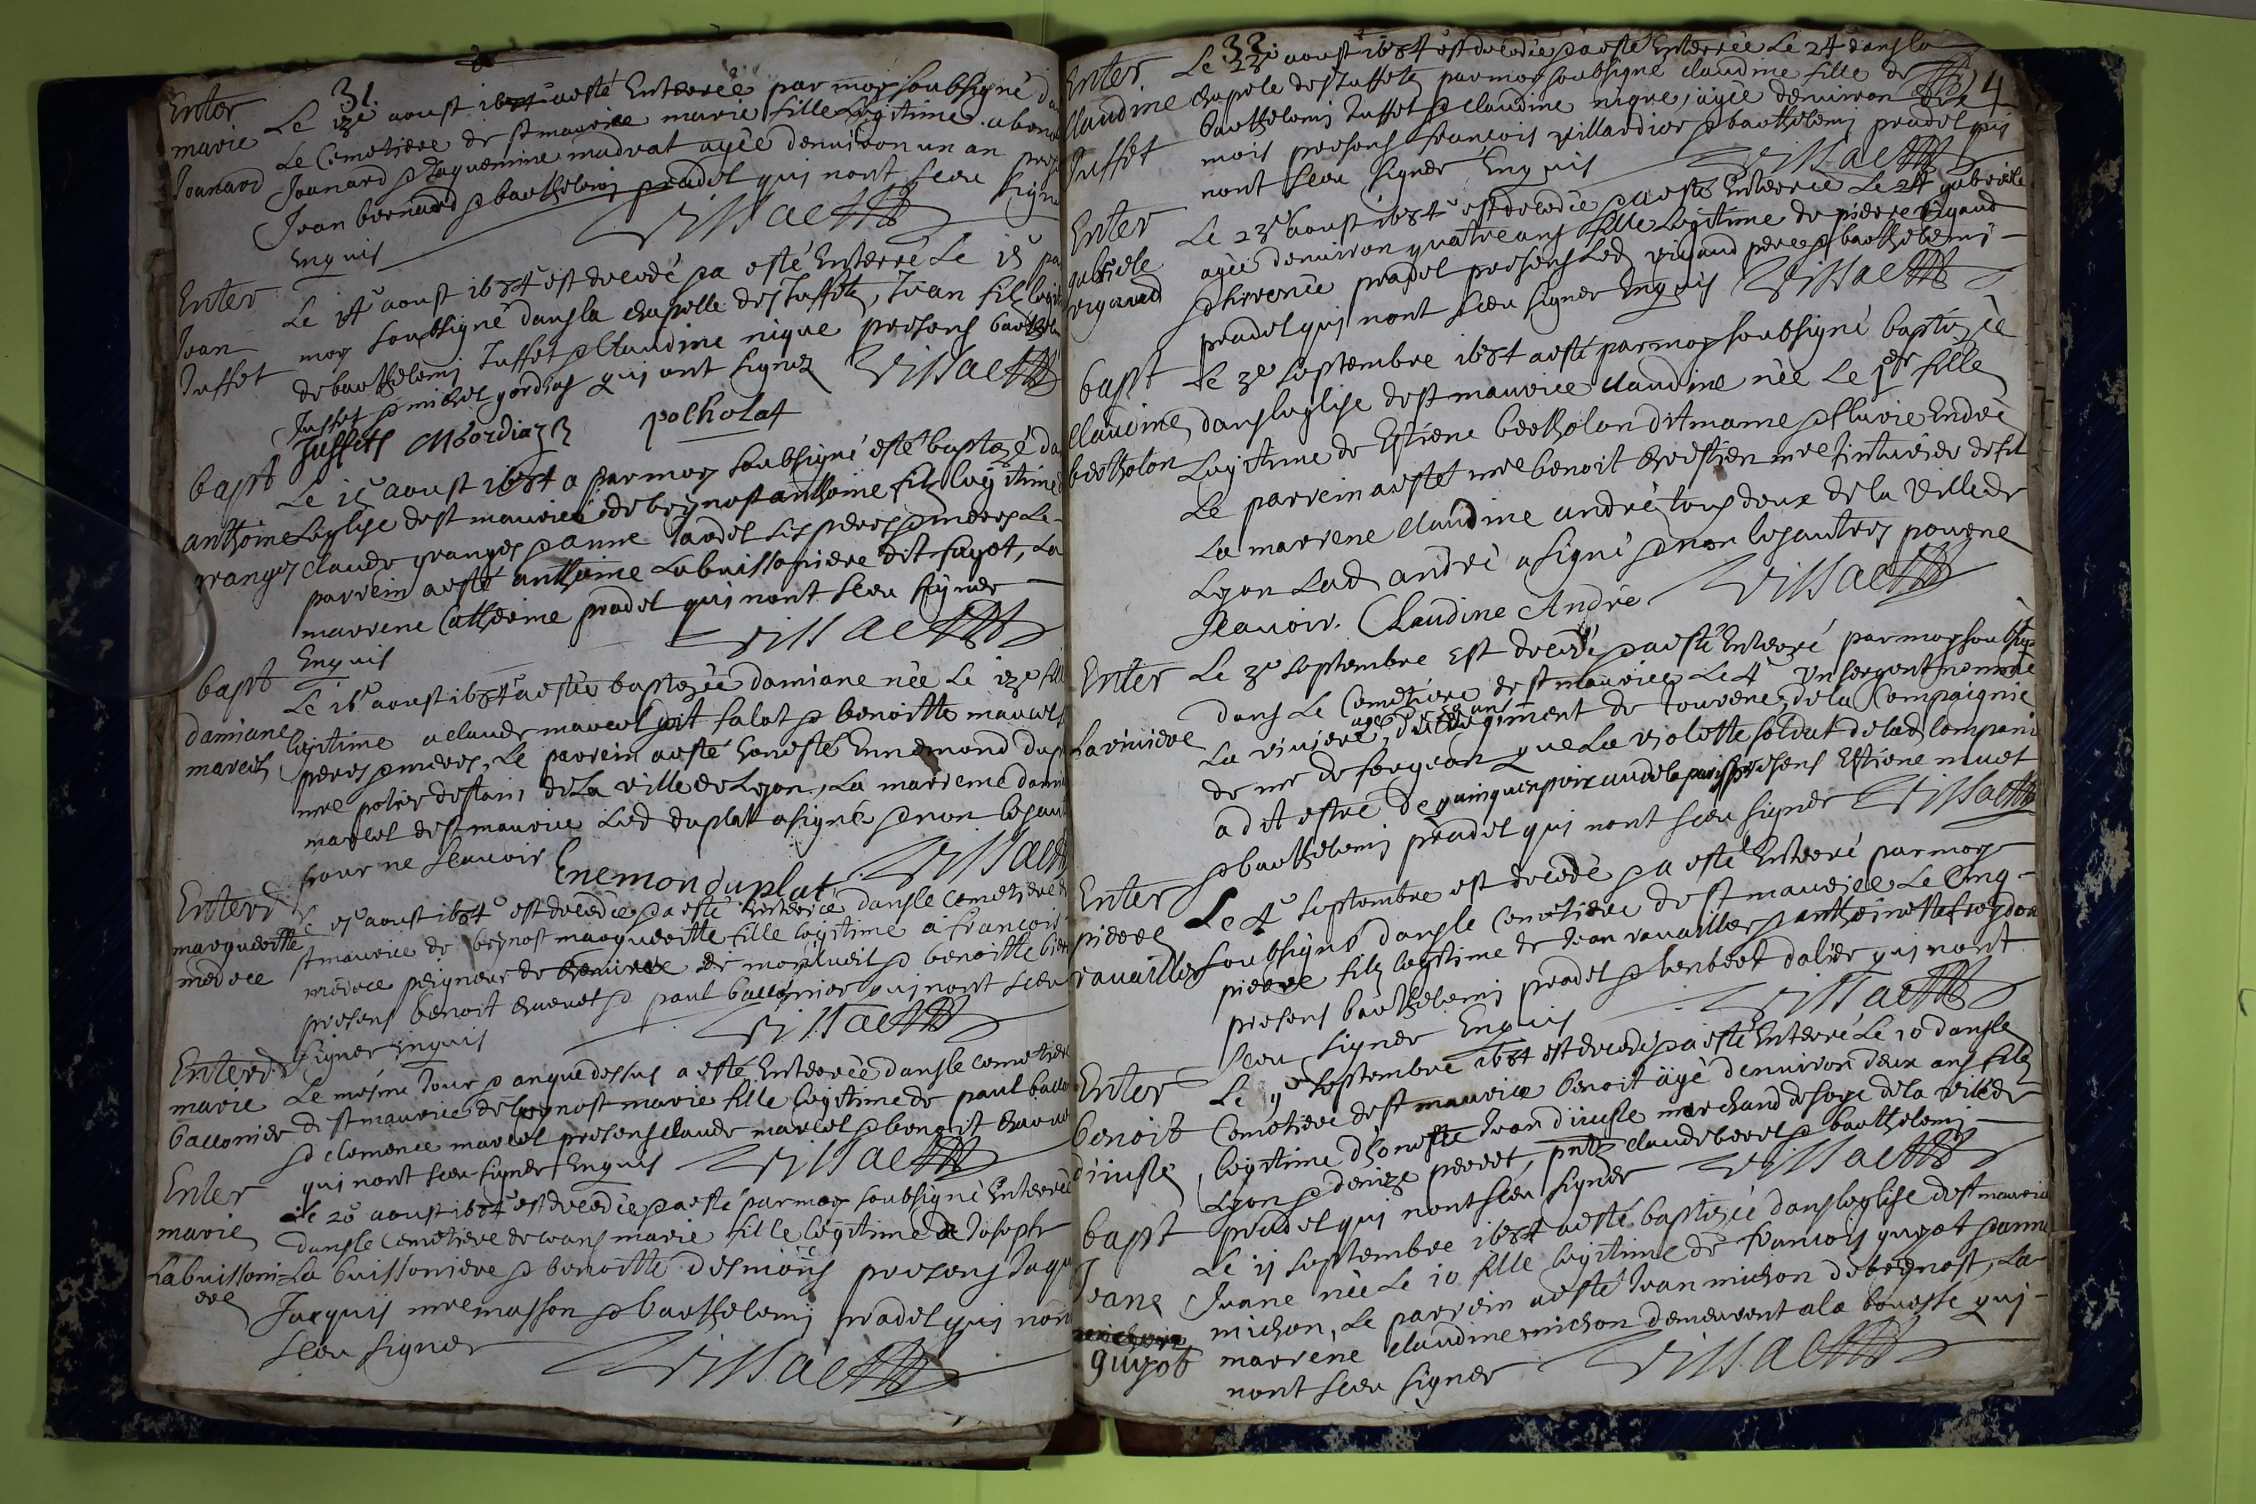 31.
Enter
marie
Jounard
Le 13e aoust 1684 a esté Enterrée par moy soubsigné
Le Cemetiere de st maurice marie fille legitime a benoi
Jounard & Jaquemine madrat agée denuiron un an
Jean bernard & barthelemi pradel qui nont sceu signe
Enquis
Vissaett
Enter
Jean
Juffet
Le 14e aoust 1684 est decedé & a esté Enterré Le 15
moy soubsigné dans la chapelle des Juffetz, Jean filz legit
de barthelemi Juffet & Claudine nique presens barthel
Juffet & michel qui ont signez
Juffets polholat Vissaett
bapt
anthoine
granges
Le 15e aoust 1684 a par moy soubsigné esté baptizé da
Leglise de st maurice de beynost anthoine filz legitime
claude granges & anne ses peres & meres Le
parrein a esté anthoine Labuissoniere dit fayot, La
marrene Catherine pradel qui nont sceu signer
Enquis
Vissaett
bapt
damiane
marcel
Le 16e aoust 1684 a estée baptizée damiane née Le 13e fill
legitime a claude marcel dit falot & benoitte marcel
peres & meres, Le parrein a esté honeste Ennemond dup
mre potier destain de La ville de Lyon, La marrene dam
marcel de st maurice Led duplat a signé & non les aut
pour ne sceauoir
Enemon duplat Vissaett
Enterr
marguerite
medoce
Le aoust 1684 est decedée & a esté Enterrée dans le cemetiere d
st maurice de beynost marguerite fille legitime a francois
peigneur de chenvre de monluel & benoitte
presens benoit chavuet & paul ballonier qui nont sceu
signer Enquis
Vissaett
Enterr
marie
ballonier
Le mesme Jour & an que dessus a esté Enterrée dans le cemetiere
de st maurice de beynost marie fille legitime de paul ballo
& clemence marcel presens claude marcel & benoit
qui nont sceu signer Enquis Vissaett
Enter
marie
Labuissoni-
ere
Le 20e aoust 1684 est decedée & a esté par moy soubsigné Enterrée
dans le Cemetiere de ceans marie fille legitime de Joseph
La buissoniere & benoitte presens Jaqu
Jacquis mre masson & barthelemi pradel qui nont
sceu signer
Vissaett
32.
4
Enter
Claudine
Juffet
Le 23e aoust 1684 est decedée & a esté Enterrée Le 24 dans la
chapele des Juffetz par moy soubsigné claudine fille de
barthelemi Juffet & claudine nique, agée denuiron
mois presens francois villardier & barthelemi pradel qui
nont sceu signer Enquis Vissaett
Enter
gabriele
rigaud
Le 23e aoust 1684 est decedée & a esté Enterrée Le 24 gabriele
agée denuiron quatre ans fille legitime de pierre rigaud
& pradel presens Led rigaud pere & barthelemi
pradel qui nont sceu signer Enquis Vissaett
bapt
Claudine
bertholon
Le 3e septembre 1684 a esté par moy soubsigné baptizée
dans leglise de st maurice claudine née Le 1er fille
Legitime de Estiene bertholon dit mame & fleurie Endré
Le parrein a esté mre benoit chrestien mre tinturier de fil
La marrene Claudine andré tous deux de la Ville de
Lyon Lad andré a signé & non les autres pour ne
sceauoir. Claudine André Vissaett
Enter
La riuiere
Le 3e septembre Est decedé & a esté Enterré par moy soubsig
dans Le Cemetiere de st maurice Le 4e Un sergent nommé
agé de ans
La riuiere, du regiment de touvene, de la Compaignie
de mr de que La violette soldat de lad compani
a dit estre de presens Estiene muet
& barthelemi pradel qui nont sceu signer Vissaett
Enter
pierre
rauailler
Le 4e septembre est decedé & a esté Enterré par moy
soubsigné dans le Cemetiere de st maurice Le Cinq
pierre filz legitime de Jean rauailler & anthoinette
presens barthelemi pradel & henbert dalier qui nont
sceu signer Enquis Vissaett
Enter
benoit
d'iuste
Le 9e septembre 1684 est decedé & a esté Enterré Le 10 dans le
Cemetiere de st maurice benoit agé denuiron deux ans filz
legitime dhoneste Jean d'iuste marchand de soye de la ville de
Lyon & denize perret, pntz claude & barthelemi
pradel qui nont sceu signer Vissaett
bapt
Jeane
guyot
Le 11 septembre 1684 a esté baptizée dans leglise de st maurice
Jeane née Le 10 fille legitime de francois guyot & anne
michon, Le parrein a esté Jean michon de beynost, La
marrene claudine michon demeurent a la bouesse qui
nont sceu signer Vissaett